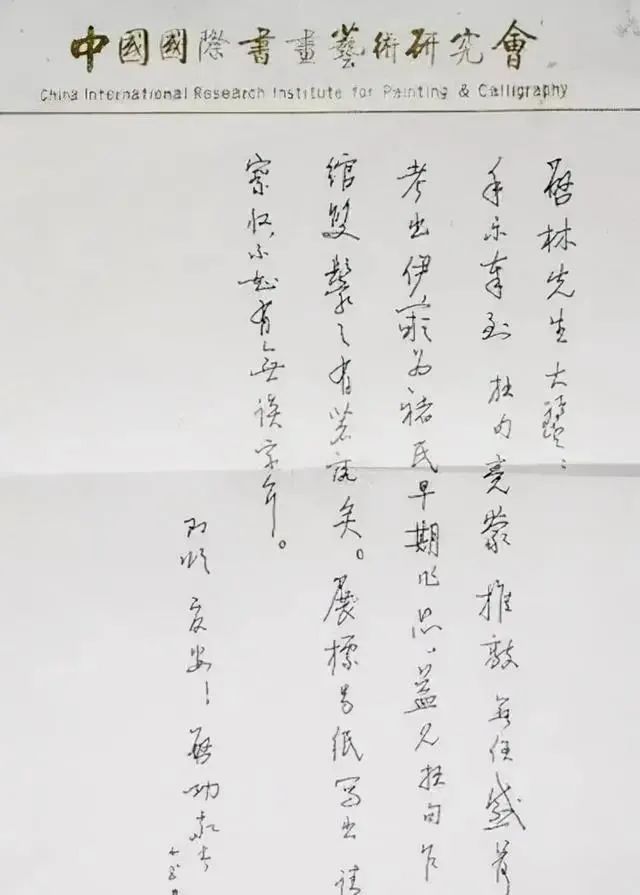 中國國際書畫藝術研究會
China International Research Institute for Painting & Calligraphy
啓林先生大鑒：
手示奉到 拙句竟蒙推敲 無任感荷
考出伊闕为褚氏早期作品、益见拙句乍
綰雙鬟之有著落矣。展標另纸写出 请
察收，不知有無误字耳。
即颂 文安！ 啓功敬上